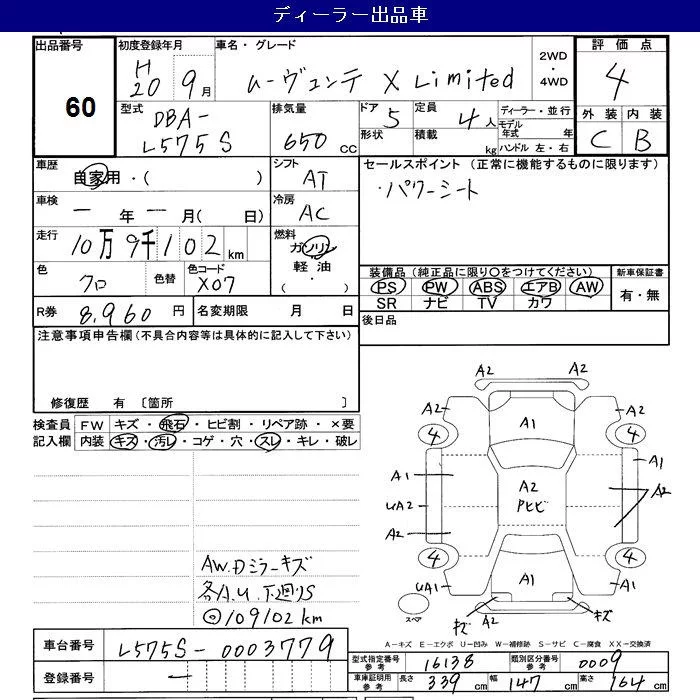 ディーラー出品車
出品番号 60
初度登録年月 H20 9月
車名・グレード ムーヴコンテ X Limited
2WD・4WD
評価点 4
型式 DBA-L575S
排気量 650 CC
ドア 5 形状
定員 4人 積載 kg
ディーラー・並行
モデル年式 年
ハンドル 左・右
外装 内装
C B
車歴 自家用・( )
シフト AT
セールスポイント(正常に機能するものに限ります)
・パワーシート
車検 ー年ー月(日)
冷房 AC
走行 10万9千102km
燃料 ガソリン 軽油 ( ・ )
色 クロ 色替 色コード X07
装備品(純正品に限り○をつけてください) 新車保証書
PS PW ABS エアB AW 有・無
SR ナビ TV カワ
R券 8,960円 名変期限 月 日
後日品
注意事項申告欄(不具合内容等は具体的に記入して下さい)
修復歴 有 〔箇所 〕
検査員 FW キズ・飛石・ヒビ割・リペア跡・×要
記入欄 内装 キズ・汚レ・コゲ・穴・スレ・キレ・破レ
A2 A2
A2 A2
4 A1 4
A1 A1
A2 Pヒビ
UA2 A2
A2
4 4
UA1 A1 UA1
キズ A2 キズ
スペア
AW.Dミラーキズ
各A.U.下廻りS
◎109102km
A-キズ E-エクボ U-凹み W-補修跡 S-サビ C-腐食 XX-交換済
車台番号 L575S-0003779
登録番号 ー
型式指定番号 参考 16138 類別区分番号 参考 0009
車庫証明用 参考 長さ 339cm 幅 147cm 高さ 164cm